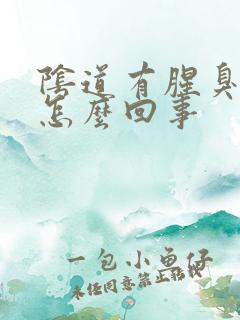 陰道有腥臭
怎麼回事
一包小魚仔
未经同意禁止转载